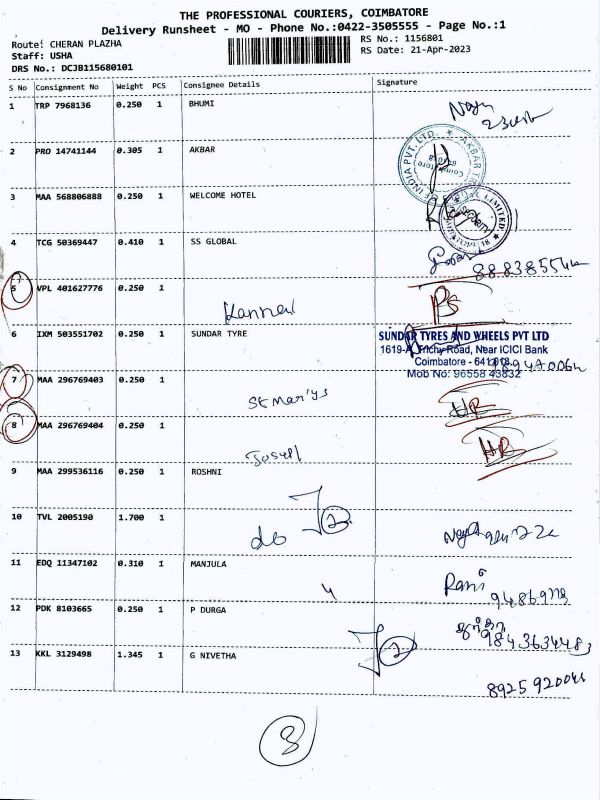 THE PROFESSIONAL COURIERS, COIMBATORE
Delivery Runsheet - MO - Phone No.:0422-3505555 - Page No.:1
Route: CHERAN PLAZHA
RS No.: 1156801
Staff: USHA
RS Date: 21-Apr-2023
DRS No.: DCJB115680101
S No Consignment No Weight PCS Consignee Details Signature
1 TRP 7968136 0.250 1 BHUMI
2 PRO 14741144 0.305 1 AKBAR
3 MAA 568806888 0.250 1 WELCOME HOTEL
4 TCG 50369447 0.410 1 SS GLOBAL
5 VPL 401627776 0.250 1
Kannan
6 IXM 503551702 0.250 1 SUNDAR TYRE
SUNDAR TYRES AND WHEELS PVT LTD
1619-A, Trichy Road, Near ICICI Bank
Coimbatore - 641018.
Mob No: 96558 43832
7 MAA 296769403 0.250 1
St Mary's
HR
8 MAA 296769404 0.250 1
HR
9 MAA 299536116 0.250 1 ROSHNI
10 TVL 2005190 1.700 1
do
2
11 EDQ 11347102 0.310 1 MANJULA
Rani
12 PDK 8103665 0.250 1 P DURGA
9843634483
13 KKL 3129498 1.345 1 G NIVETHA
2
8